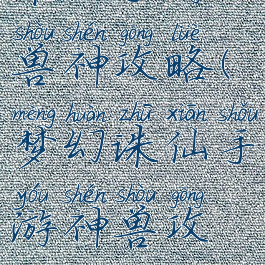 shòu shén gōng lüè
兽神攻略(
mèng huàn zhū xiān shǒu
梦幻诛仙手
yóu shén shòu gōng
游神兽攻